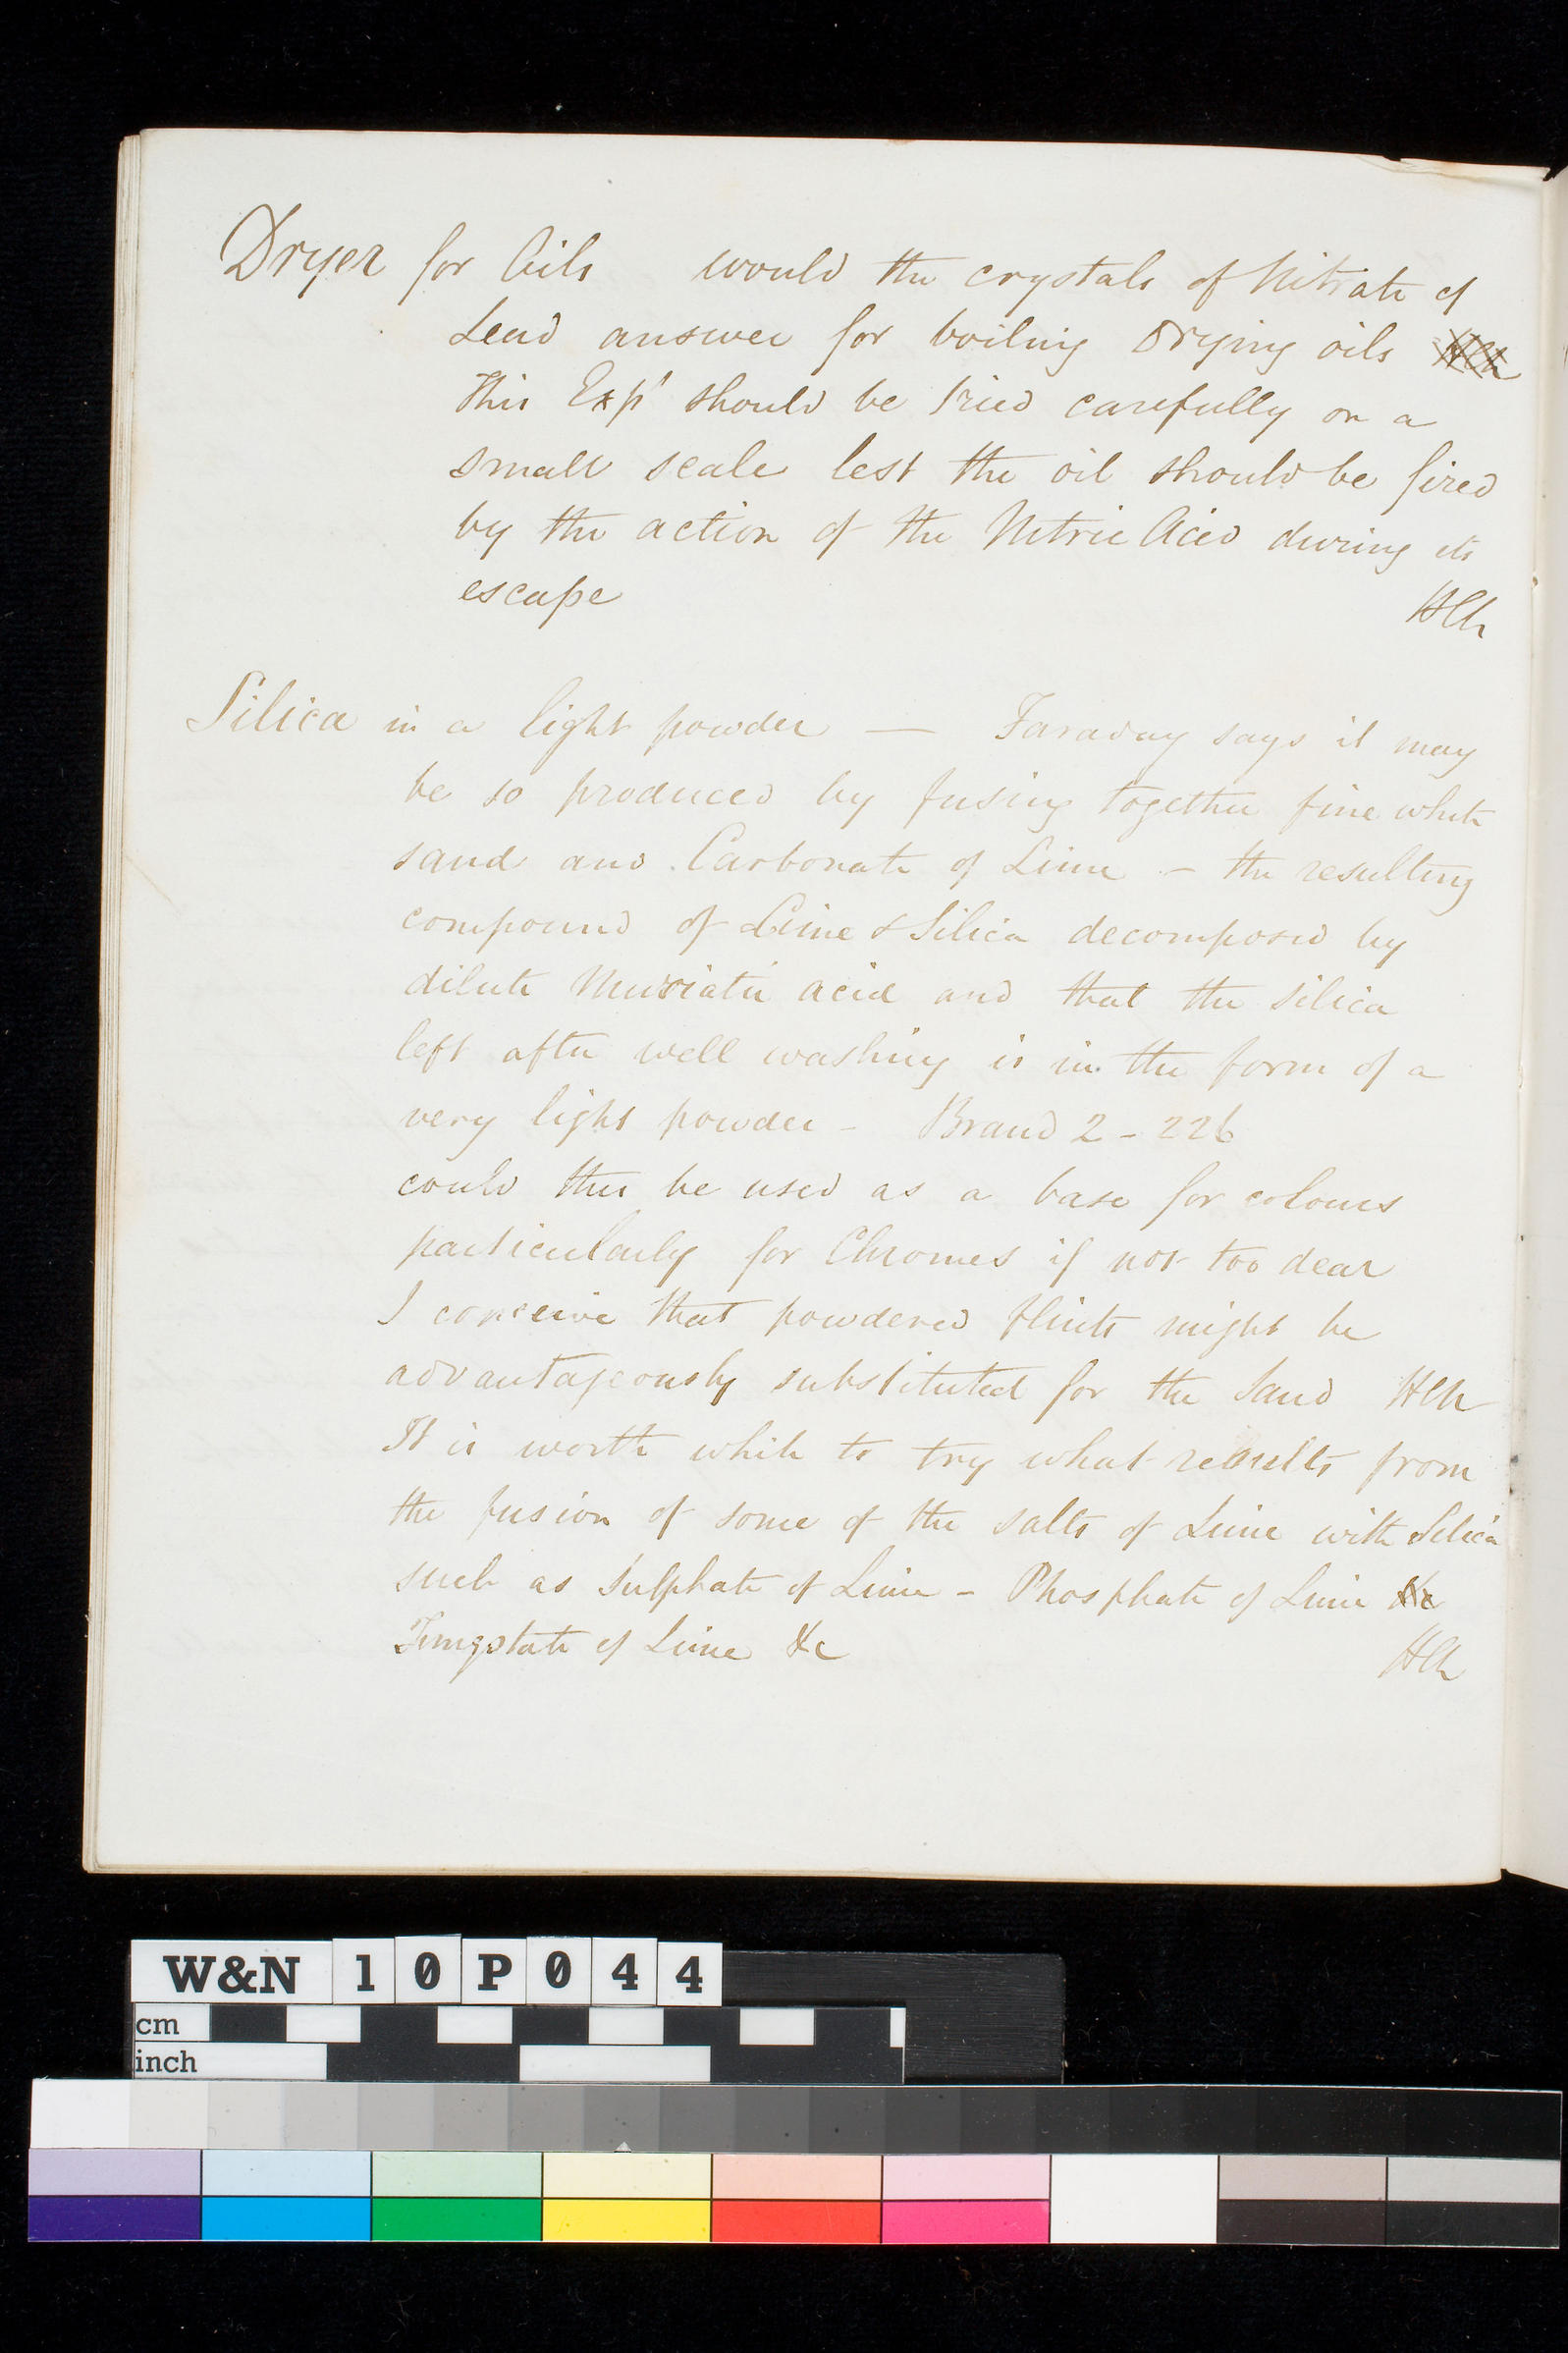 Dryer for Oils would the crystals of Nitrate of
Lead answer for boiling Drying oils HCN
This Expt should be tried carefully on a
small scale lest the oil should be fired
by the action of the Nitric Acid during its
escape HCN
Silica in a light powder — Faraday says it may
be so produced by fusing together fine white
sand and Carbonate of Lime – the resulting
compound of Lime & Silica decomposed by
dilute Muriatic acid and that the silica
left after well washing is in the form of a
very light powder – Brand 2 – 226
could this be used as a base for colours
particularly for Chromes if not too dear
I conceive that powdered flints might be
advantageously substituted for the Sand HCN
It is worth while to try what results from
the fusion of some of the salts of Lime with Silica
such as Sulphate of Lime – Phosphate of Lime &c
Tungstate of Lime &c HCN
W&N 10P044
cm
inch